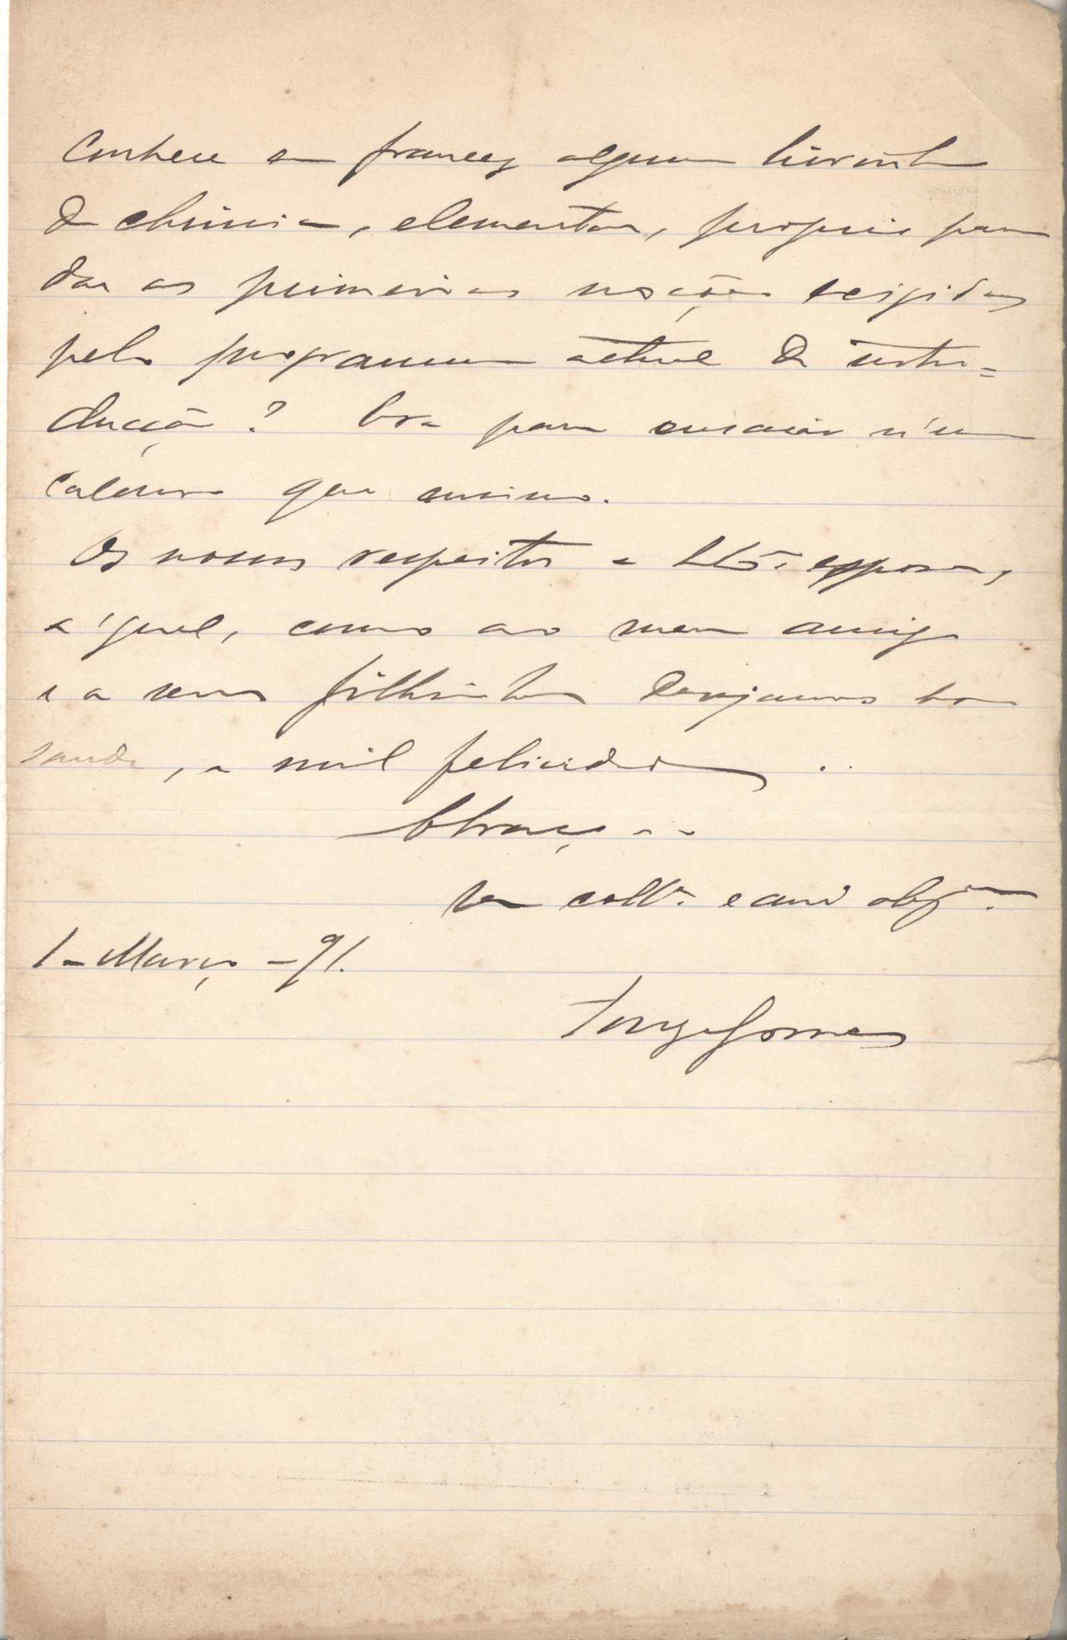 Conhece em francez algum livrinho
de chimica, elementar, proprio para
dar as primeiras noções exigidas
pelo programma actual de intro=
ducção? Era para ensaiar n'um
calouro que ensino.
Os nossos respeitos a esposa,
a qual, como ao meu amigo
e a seus filhinhos desejamos boa
saude, e mil felicidades.
Abraça-o
seu coll.ª e am.º obg.mo
1-Março-91.
Jorge Gomes